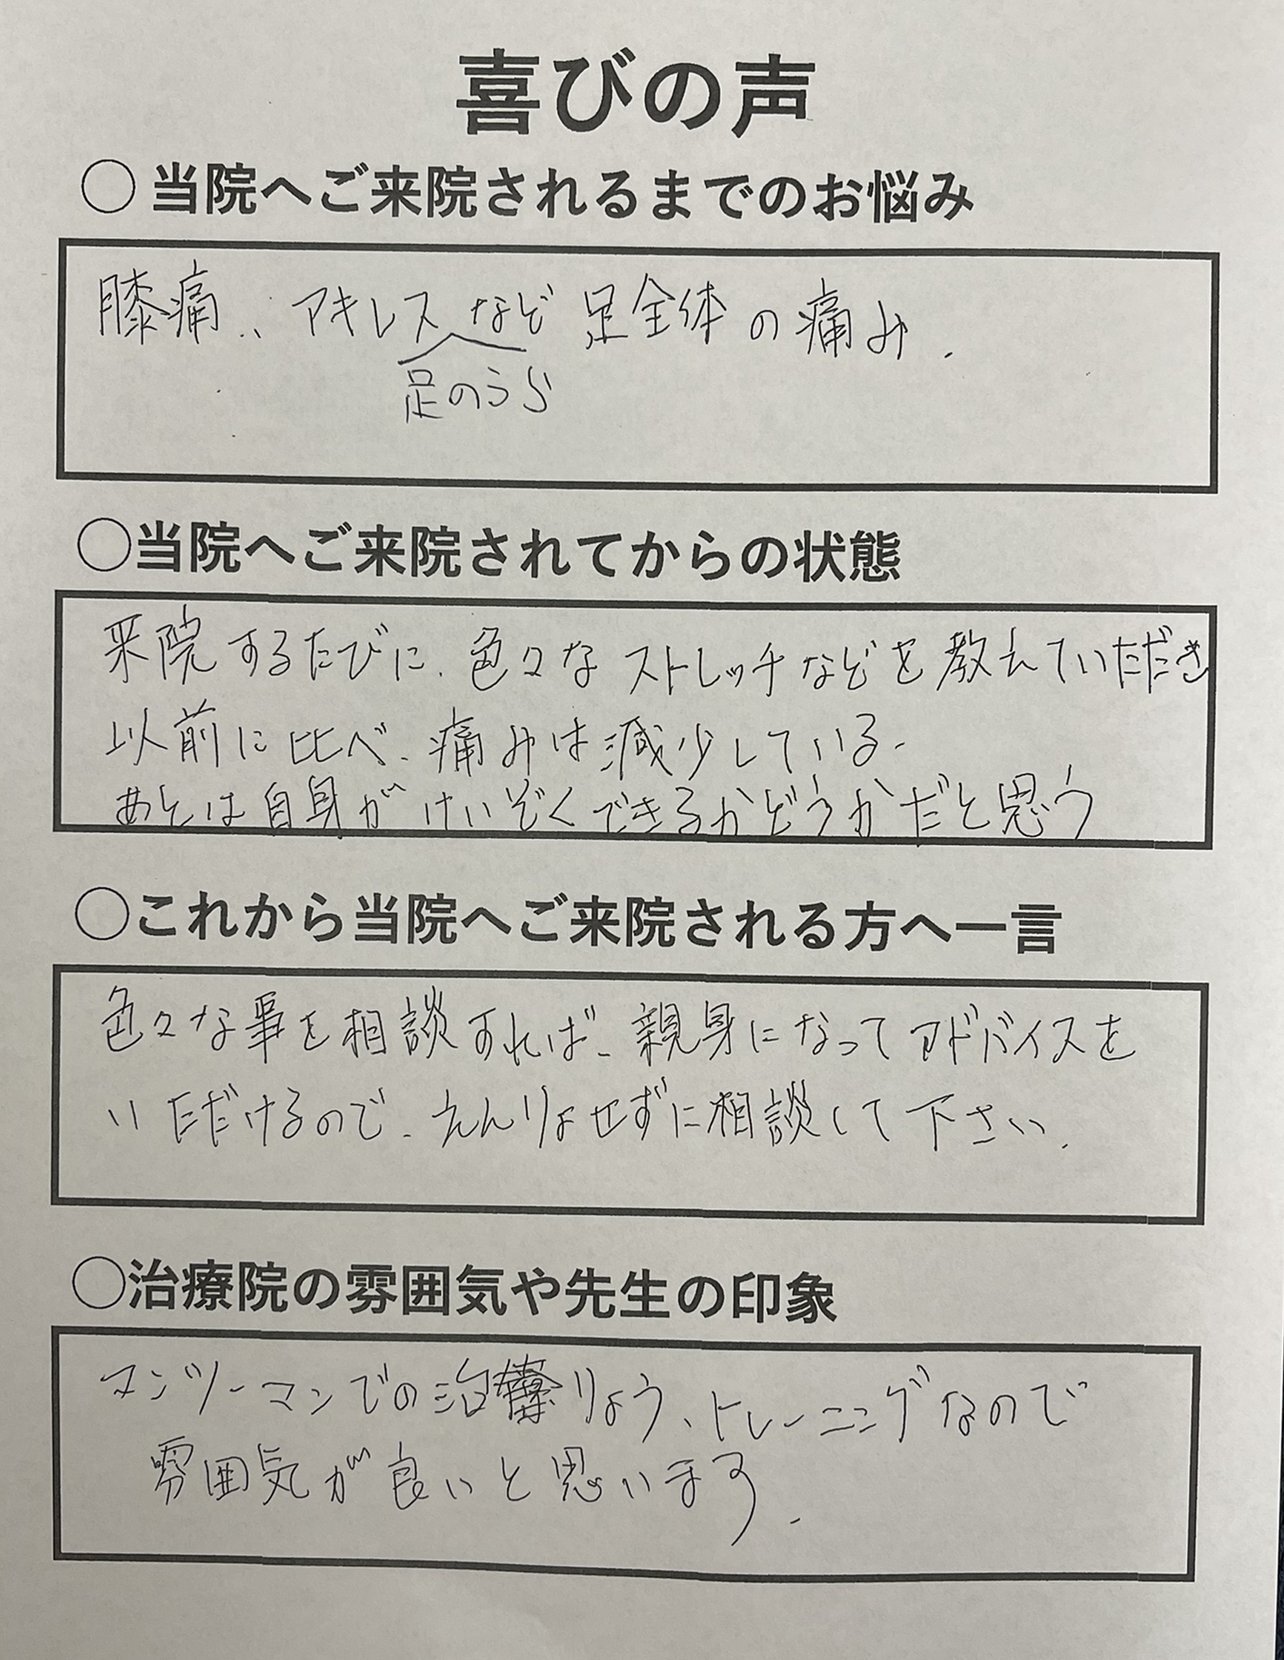 喜びの声
○ 当院へご来院されるまでのお悩み
膝痛、アキレス など 足全体の痛み.
足のうら
○当院へご来院されてからの状態
来院するたびに、色々な ストレッチなどを教えていただき
以前に比べ、痛みは減少している.
あとは自身がけいぞくできるかどうかだと思う
○これから当院へご来院される方へ一言
色々な事を相談すれば、親身になってアドバイスを
いただけるので、えんりょせずに相談して下さい.
○治療院の雰囲気や先生の印象
マンツーマンでの治りょう、トレーニングなので
雰囲気が良いと思います.